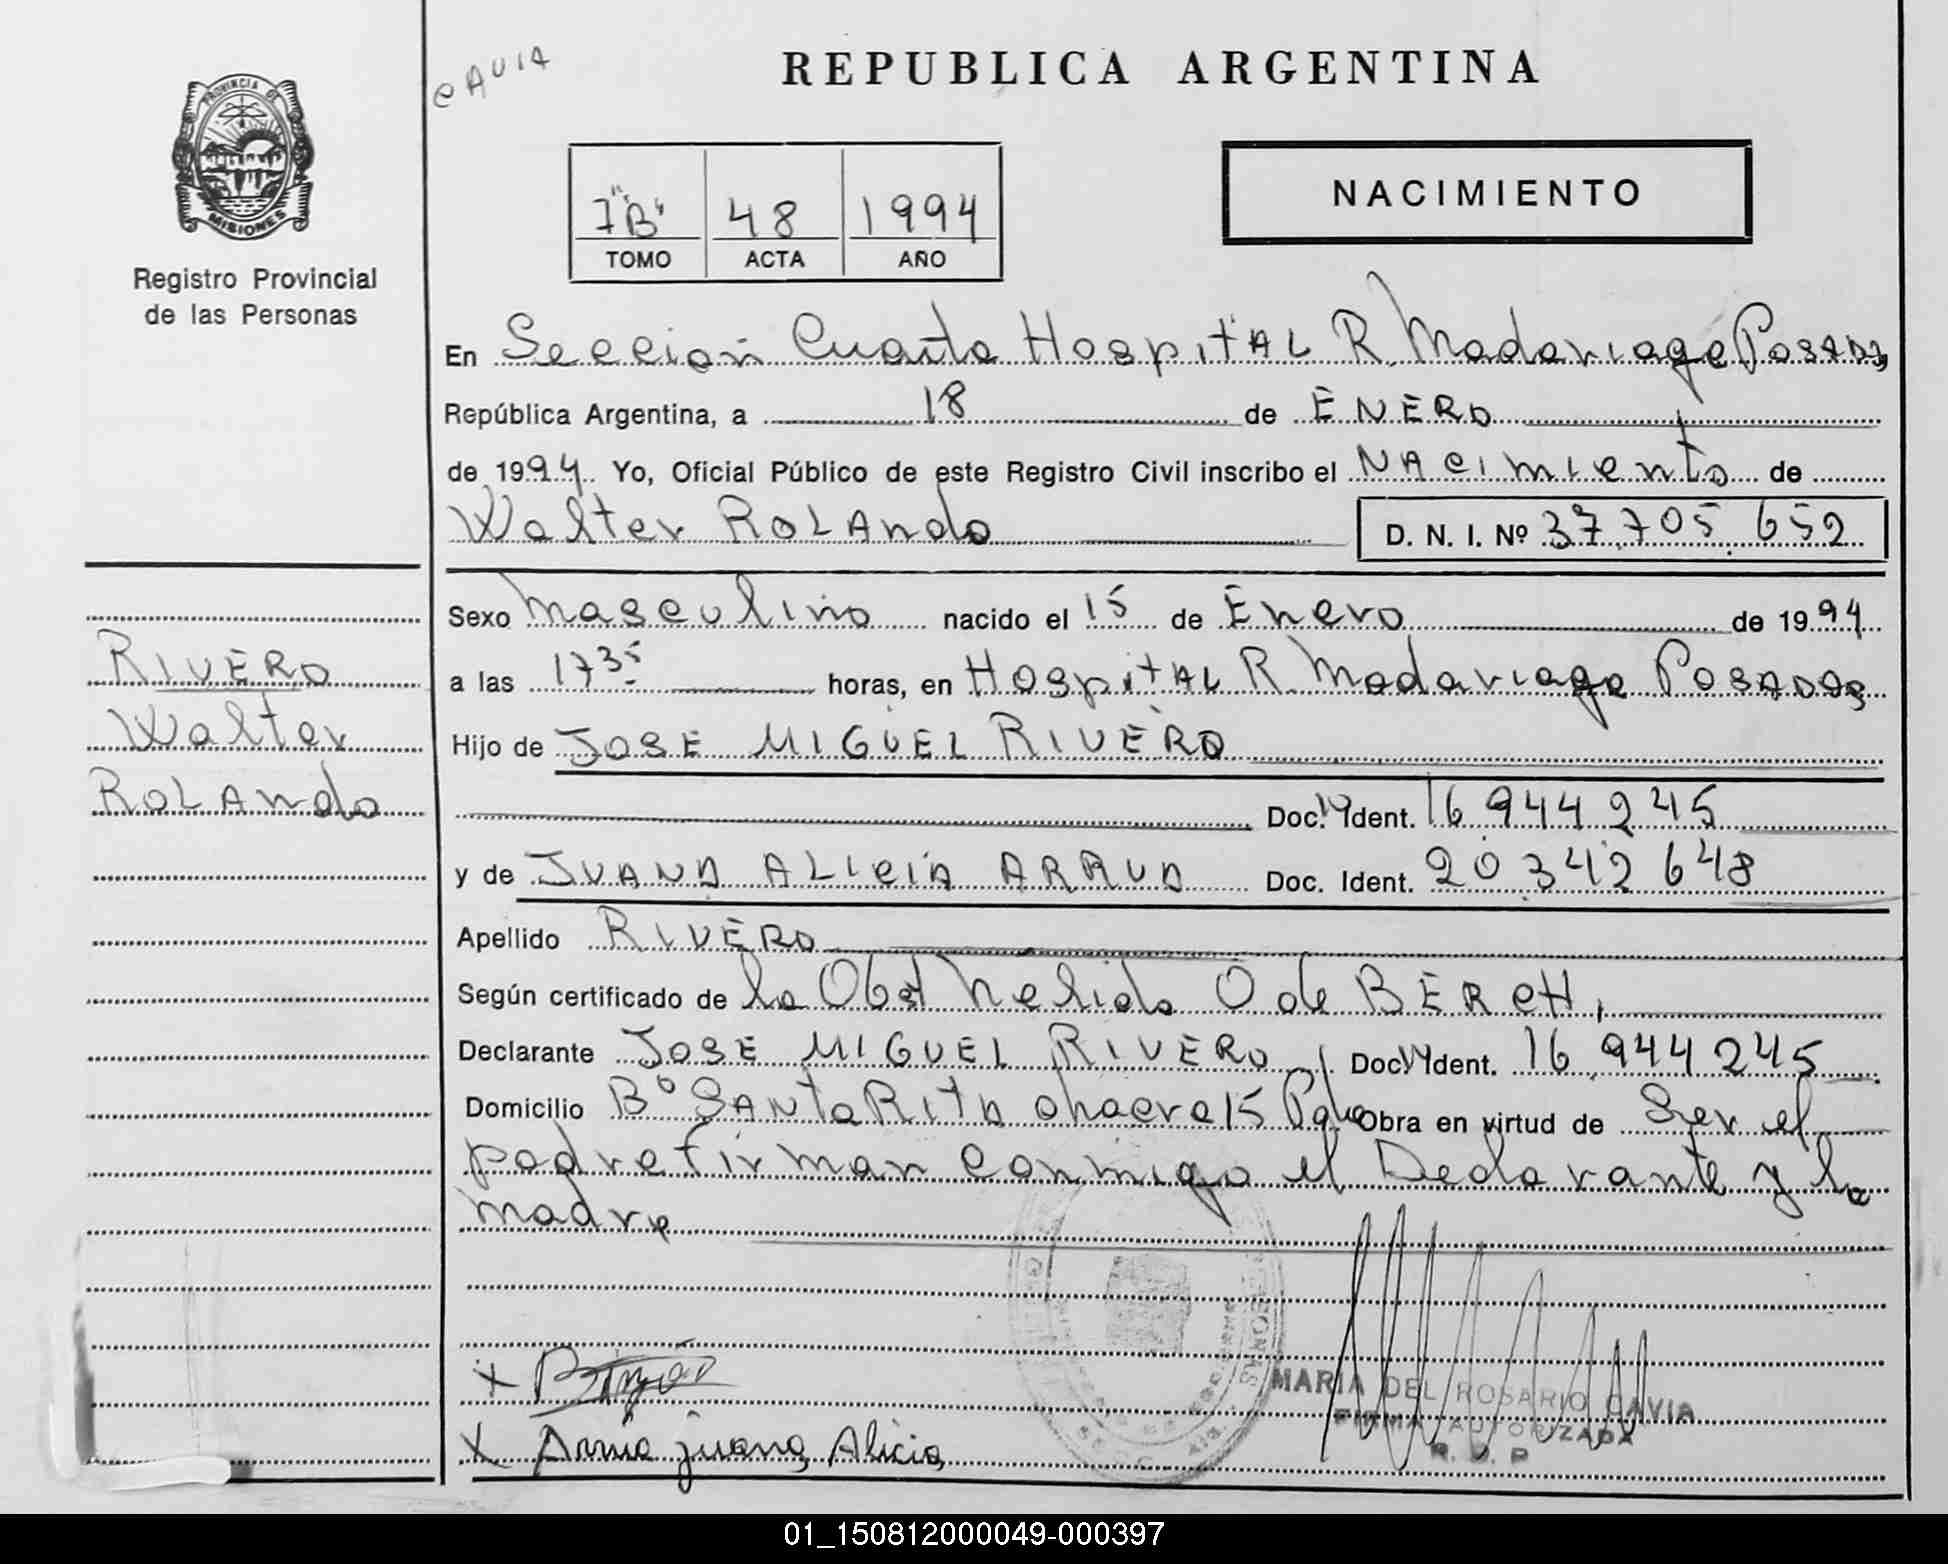 CAVIA
REPUBLICA ARGENTINA
PROVINCIA DE
MISIONES
Registro Provincial
de las Personas
7"B" 48 1994
TOMO ACTA AÑO
NACIMIENTO
En Sección Cuarta Hospital R. Madariaga Posadas
República Argentina, a 18 de ENERO
de 1994. Yo, Oficial Público de este Registro Civil inscribo el Nacimiento de
Walter Rolando D. N. I. Nº 37.705.652
Sexo Masculino nacido el 15 de Enero de 1994
a las 17 35 horas, en Hospital R. Madariaga Posadas
Hijo de JOSE MIGUEL RIVERO
Doc. Ident. 16.944.245
y de JUANA ALICIA Doc. Ident. 20.342.648
Apellido RIVERO
Según certificado de la Obst Nelida O de
Declarante JOSE MIGUEL RIVERO Doc. Ident. 16.944.245
Domicilio Bº Santa Rita chacra 15 Obra en virtud de Ser el
padre firman conmigo el Declarante y la
madre
RIVERO
Walter
Rolando
X
X juana Alicia
MARIA DEL ROSARIO CAVIA
FIRMA AUTORIZADA
R. D. P
01_150812000049-000397